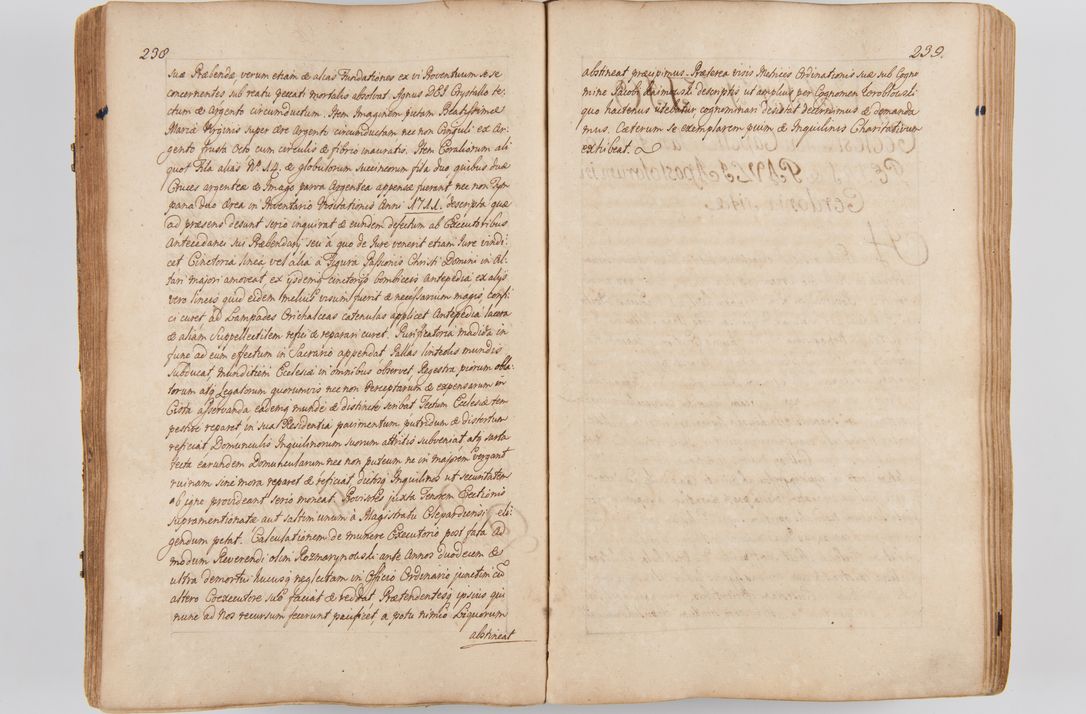 238
suæ Præbendæ verum etiam & alias Fundationes ex vi Proventuum se se
concernentes sub reatu peccati mortalis absolvat. Agnus DEI Crystallo te-
ctum & Argento circumductum. Item Imaginem pictam Beatissimæ
Mariæ Virginis super Ære Argento circumductam nec non Cinguli ex Ar-
gento frusta Octo cum circulis & fibrio inauratis. Item Corallorum ali
quot Fila alias Nº 14. & globulorum succineorum fila duo quibus duæ
Cruces argenteæ & Imago parva Argentea appensæ fuerant nec non Tym
pana duo Ærea in Inventario Visitationis Anni 1711. descripta quæ
ad præsens desunt serio inquirat & eundem defectum ab Executoribus
Antecedanei sui Præbendarij seu a quo de Jure venerit etiam Jure vindi-
cet Cinctoria linea vel alia a Figura Passionis Christi Domini in Al-
tari majori amoveat, ex ijsdemq cinctorijs bombiceis Antepedia ex alijs
vero lineis quid eidem melius visum fuerit & necessarium magis, confi-
ci curet ad Lampades Orichalceas catenulas applicet Antepedia lacera
& aliam Suppellectilem refici & reparari curet. Purificatoria madida in
fune ad eum effectum in Sacrario appendat Pallas linteolis mundis
subducat, munditiem Ecclesiæ in omnibus observet Regestra piorum obla-
torum atq Legatorum quorumvis nec non Perceptarum & expensarum in
Cista asservanda eademq munde & distincte scribat Tectum Ecclesiæ tem
pestive reparet in sua Residentia pavimentum putridum & distortum
reficiat, Domunculis Inquilinorum suorum attritis subveniat atq sarta
tecta earundem Domuncularum nec non puteum ne in majorem vergant
ruinam sine mora reparet & reficiat dictosq Inquilinos ut securitatem
ab igne provideant serio moneat. Provisores juxta Tenorem Erectionis
supramentionatæ aut saltim unum à Magistratu Cleparduensi eli
gendum petat. Calculationem de munere Executorio post fata Ad-
modum Reverendi olim Rozmarynowski ante Annos duodecem &
ultra demortui hucusq neglectam in Officio Ordinario junctim cū
altero Coexecutore suo faciat & reddat Prætendentesq ipsius qui
nunc ad Nos recursum fecerunt pacificet, a potu nimio Liquorum
abstineat
239.
abstineat præcipimus. Præterea visis Metricis Ordinationis suæ sub Cogno
mine Jacobi descriptis ut amplius per Cognomen
quo hactenus utebatur cognominari desistat decernimus & demanda
mus. Cæterum se exemplarem pium & Inquilinis Charitativum
exhibeat.